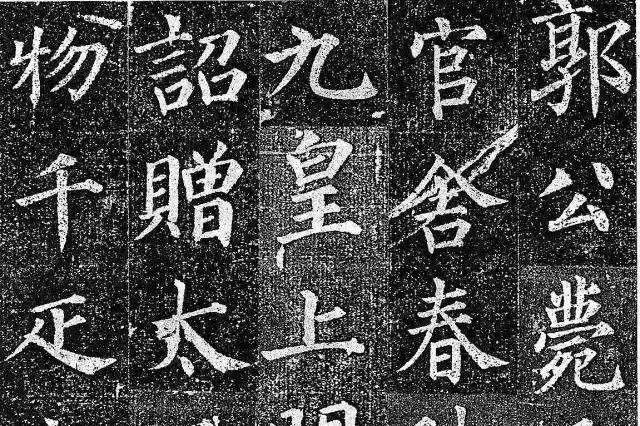 郭公薨
官舍春
九皇上
詔贈太
物千疋